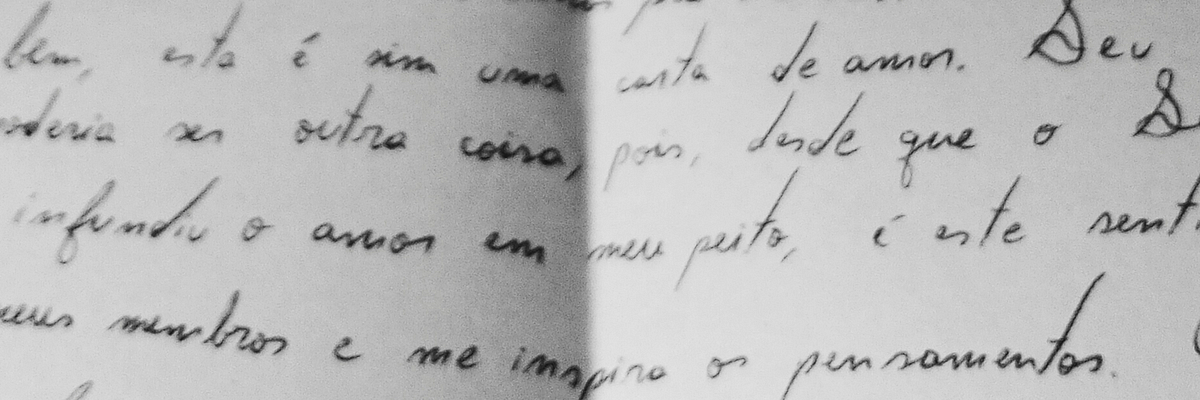 bem, esta é sim uma carta de amor. Deu
poderia ser outra coisa, pois, desde que o
infundiu o amor em meu peito, é este sent
meus membros e me inspira os pensamentos.